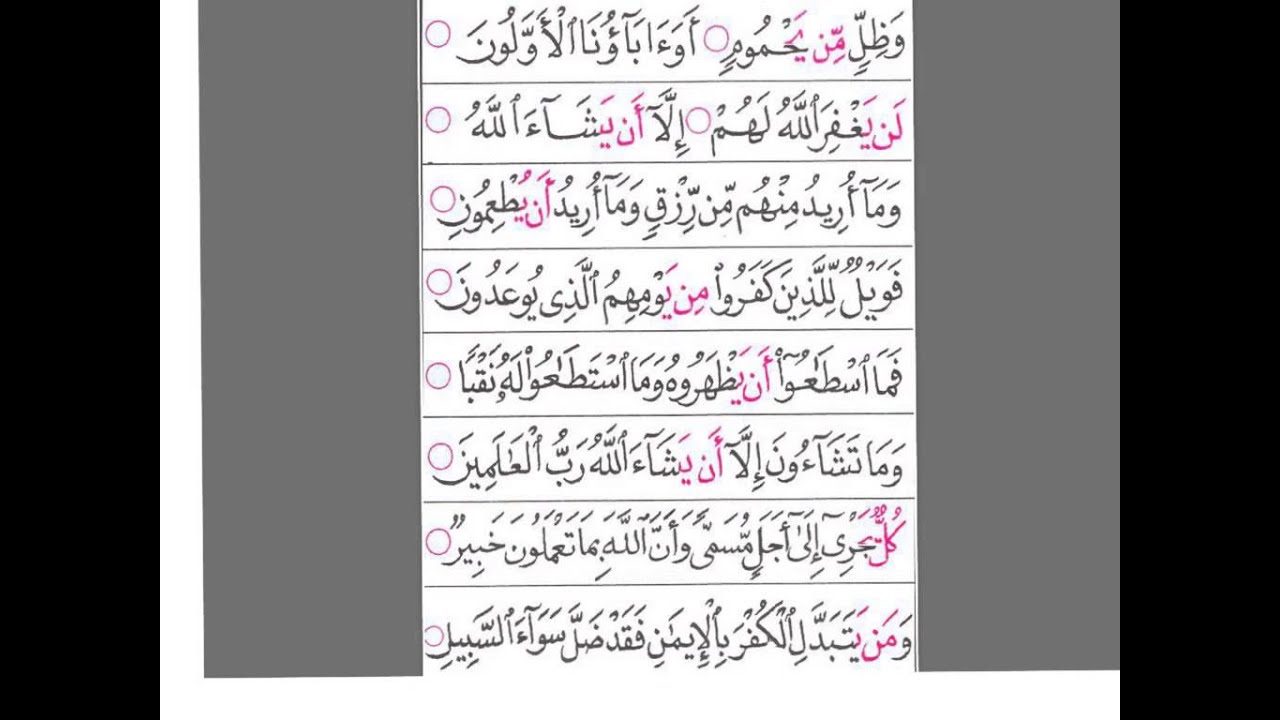 وَظِلٍّ مِّن يَحْمُومٍ ○ أَوَءَابَآؤُنَا ٱلْأَوَّلُونَ ○
لَن يَغْفِرَ ٱللَّهُ لَهُمْ ○ إِلَّآ أَن يَشَآءَ ٱللَّهُ ○
وَمَآ أُرِيدُ مِنْهُم مِّن رِّزْقٍ وَمَآ أُرِيدُ أَن يُطْعِمُونِ ○
فَوَيْلٌ لِّلَّذِينَ كَفَرُوا۟ مِن يَوْمِهِمُ ٱلَّذِى يُوعَدُونَ ○
فَمَا ٱسْطَٰعُوٓا۟ أَن يَظْهَرُوهُ وَمَا ٱسْتَطَٰعُوا۟ لَهُۥ نَقْبًا ○
وَمَا تَشَآءُونَ إِلَّآ أَن يَشَآءَ ٱللَّهُ رَبُّ ٱلْعَٰلَمِينَ ○
كُلٌّ يَجْرِىٓ إِلَىٰٓ أَجَلٍ مُّسَمًّى وَأَنَّ ٱللَّهَ بِمَا تَعْمَلُونَ خَبِيرٌ ○
وَمَن يَتَبَدَّلِ ٱلْكُفْرَ بِٱلْإِيمَٰنِ فَقَدْ ضَلَّ سَوَآءَ ٱلسَّبِيلِ ○